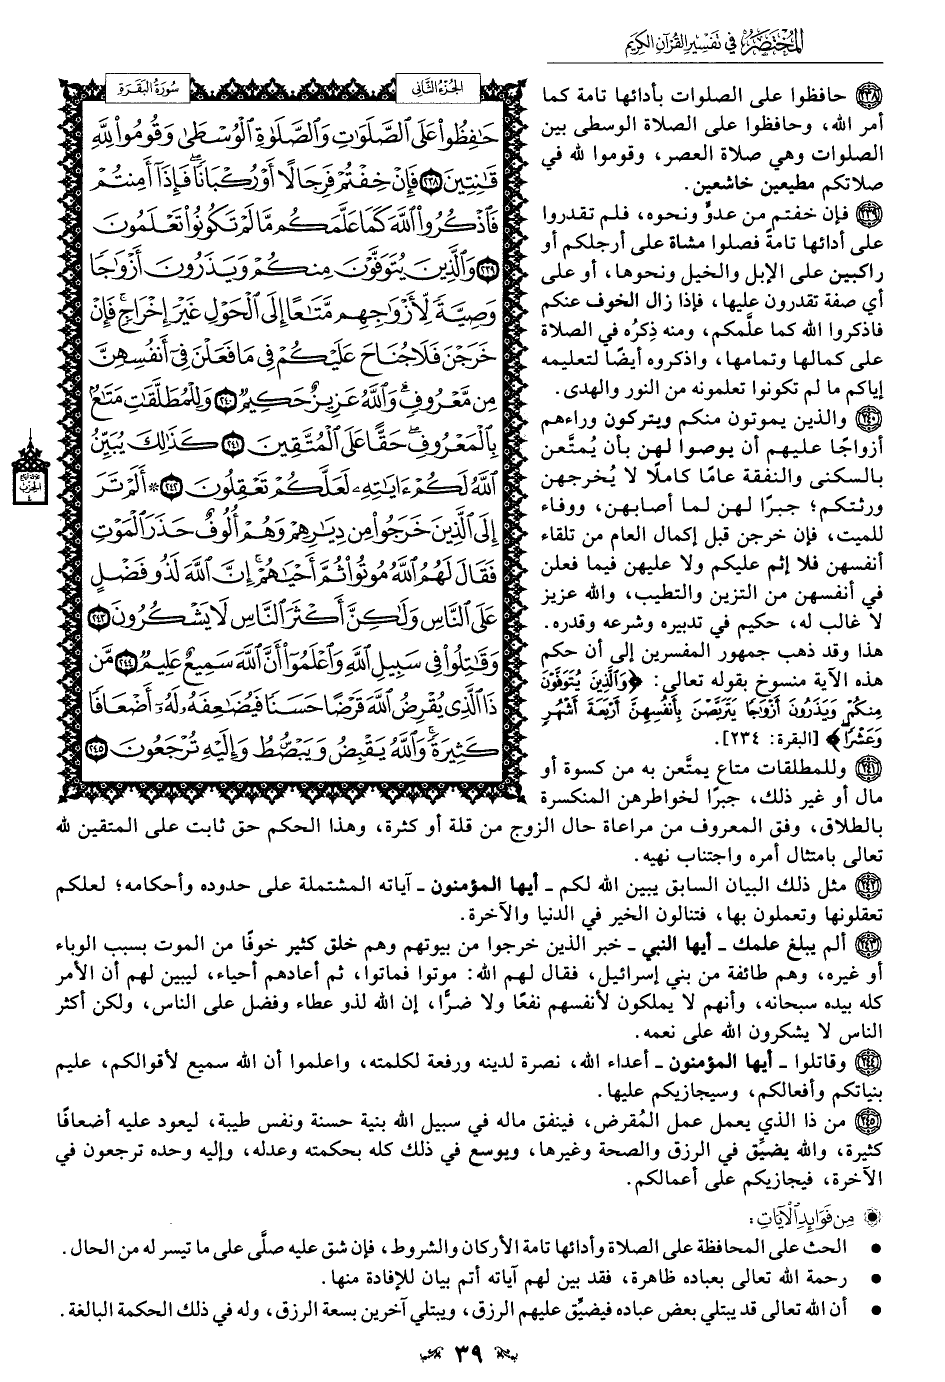 المختصر في تفسير القرآن الكريم
الجزء الثاني
سورة البقرة
حَٰفِظُوا۟ عَلَى ٱلصَّلَوَٰتِ وَٱلصَّلَوٰةِ ٱلْوُسْطَىٰ وَقُومُوا۟ لِلَّهِ
قَٰنِتِينَ ٢٣٨ فَإِنْ خِفْتُمْ فَرِجَالًا أَوْ رُكْبَانًا ۖ فَإِذَآ أَمِنتُمْ
فَٱذْكُرُوا۟ ٱللَّهَ كَمَا عَلَّمَكُم مَّا لَمْ تَكُونُوا۟ تَعْلَمُونَ
٢٣٩ وَٱلَّذِينَ يُتَوَفَّوْنَ مِنكُمْ وَيَذَرُونَ أَزْوَٰجًا
وَصِيَّةً لِّأَزْوَٰجِهِم مَّتَٰعًا إِلَى ٱلْحَوْلِ غَيْرَ إِخْرَاجٍ ۚ فَإِنْ
خَرَجْنَ فَلَا جُنَاحَ عَلَيْكُمْ فِى مَا فَعَلْنَ فِىٓ أَنفُسِهِنَّ
مِن مَّعْرُوفٍ ۗ وَٱللَّهُ عَزِيزٌ حَكِيمٌ ٢٤٠ وَلِلْمُطَلَّقَٰتِ مَتَٰعٌۢ
بِٱلْمَعْرُوفِ ۖ حَقًّا عَلَى ٱلْمُتَّقِينَ ٢٤١ كَذَٰلِكَ يُبَيِّنُ
ٱللَّهُ لَكُمْ ءَايَٰتِهِۦ لَعَلَّكُمْ تَعْقِلُونَ ٢٤٢ ۞ أَلَمْ تَرَ
إِلَى ٱلَّذِينَ خَرَجُوا۟ مِن دِيَٰرِهِمْ وَهُمْ أُلُوفٌ حَذَرَ ٱلْمَوْتِ
فَقَالَ لَهُمُ ٱللَّهُ مُوتُوا۟ ثُمَّ أَحْيَٰهُمْ ۚ إِنَّ ٱللَّهَ لَذُو فَضْلٍ
عَلَى ٱلنَّاسِ وَلَٰكِنَّ أَكْثَرَ ٱلنَّاسِ لَا يَشْكُرُونَ ٢٤٣
وَقَٰتِلُوا۟ فِى سَبِيلِ ٱللَّهِ وَٱعْلَمُوٓا۟ أَنَّ ٱللَّهَ سَمِيعٌ عَلِيمٌ ٢٤٤ مَّن
ذَا ٱلَّذِى يُقْرِضُ ٱللَّهَ قَرْضًا حَسَنًا فَيُضَٰعِفَهُۥ لَهُۥٓ أَضْعَافًا
كَثِيرَةً ۚ وَٱللَّهُ يَقْبِضُ وَيَبْصُۜطُ وَإِلَيْهِ تُرْجَعُونَ ٢٤٥
٢٣٨ حافظوا على الصلوات بأدائها تامة كما
أمر الله، وحافظوا على الصلاة الوسطى بين
الصلوات وهي صلاة العصر، وقوموا لله في
صلاتكم مطيعين خاشعين.
٢٣٩ فإن خفتم من عدوٍّ ونحوه، فلم تقدروا
على أدائها تامةً فصلوا مشاة على أرجلكم أو
راكبين على الإبل والخيل ونحوها، أو على
أي صفة تقدرون عليها، فإذا زال الخوف عنكم
فاذكروا الله كما علَّمكم، ومنه ذِكرُه في الصلاة
على كمالها وتمامها، واذكروه أيضًا لتعليمه
إياكم ما لم تكونوا تعلمونه من النور والهدى.
٢٤٠ والذين يموتون منكم ويتركون وراءهم
أزواجًا عليهم أن يوصوا لهن بأن يُمتَّعن
بالسكنى والنفقة عامًا كاملًا لا يُخرجهن
ورثتكم؛ جبرًا لهن لما أصابهن، ووفاء
للميت، فإن خرجن قبل إكمال العام من تلقاء
أنفسهن فلا إثم عليكم ولا عليهن فيما فعلن
في أنفسهن من التزين والتطيب، والله عزيز
لا غالب له، حكيم في تدبيره وشرعه وقدره.
هذا وقد ذهب جمهور المفسرين إلى أن حكم
هذه الآية منسوخ بقوله تعالى: ﴿وَٱلَّذِينَ يُتَوَفَّوْنَ
مِنكُمْ وَيَذَرُونَ أَزْوَٰجًا يَتَرَبَّصْنَ بِأَنفُسِهِنَّ أَرْبَعَةَ أَشْهُرٍ
وَعَشْرًا﴾ [البقرة: ٢٣٤].
٢٤١ وللمطلقات متاع يمتَّعن به من كسوة أو
مال أو غير ذلك، جبرًا لخواطرهن المنكسرة
بالطلاق، وفق المعروف من مراعاة حال الزوج من قلة أو كثرة، وهذا الحكم حق ثابت على المتقين لله
تعالى بامتثال أمره واجتناب نهيه.
٢٤٢ مثل ذلك البيان السابق يبين الله لكم ـ أيها المؤمنون ـ آياته المشتملة على حدوده وأحكامه؛ لعلكم
تعقلونها وتعملون بها، فتنالون الخير في الدنيا والآخرة.
٢٤٣ ألم يبلغ علمك ـ أيها النبي ـ خبر الذين خرجوا من بيوتهم وهم خلق كثير خوفًا من الموت بسبب الوباء
أو غيره، وهم طائفة من بني إسرائيل، فقال لهم الله: موتوا فماتوا، ثم أعادهم أحياء، ليبين لهم أن الأمر
كله بيده سبحانه، وأنهم لا يملكون لأنفسهم نفعًا ولا ضرًّا، إن الله لذو عطاء وفضل على الناس، ولكن أكثر
الناس لا يشكرون الله على نعمه.
٢٤٤ وقاتلوا ـ أيها المؤمنون ـ أعداء الله، نصرة لدينه ورفعة لكلمته، واعلموا أن الله سميع لأقوالكم، عليم
بنياتكم وأفعالكم، وسيجازيكم عليها.
٢٤٥ من ذا الذي يعمل عمل المُقرض، فينفق ماله في سبيل الله بنية حسنة ونفس طيبة، ليعود عليه أضعافًا
كثيرة، والله يضيِّق في الرزق والصحة وغيرها، ويوسع في ذلك كله بحكمته وعدله، وإليه وحده ترجعون في
الآخرة، فيجازيكم على أعمالكم.
من فوائد الآيات:
• الحث على المحافظة على الصلاة وأدائها تامة الأركان والشروط، فإن شق عليه صلَّى على ما تيسر له من الحال.
• رحمة الله تعالى بعباده ظاهرة، فقد بين لهم آياته أتم بيان للإفادة منها.
• أن الله تعالى قد يبتلي بعض عباده فيضيِّق عليهم الرزق، ويبتلي آخرين بسعة الرزق، وله في ذلك الحكمة البالغة.
٣٩